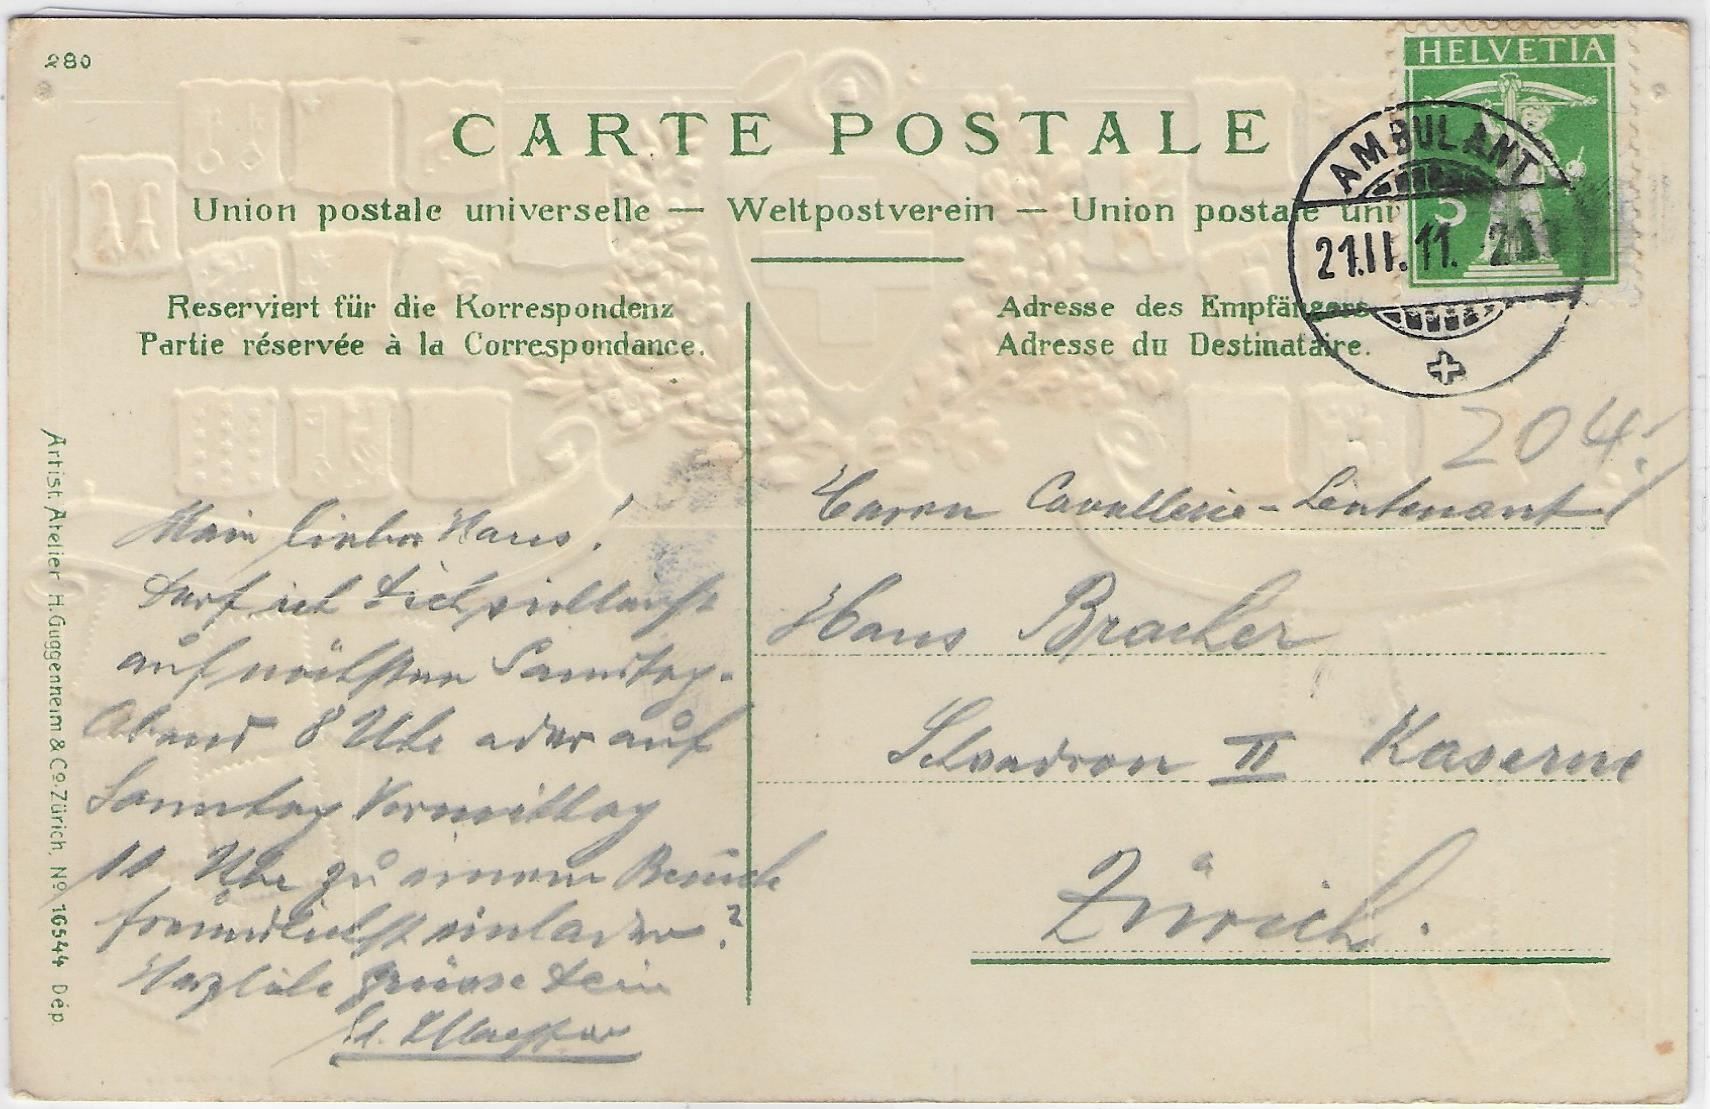 280
HELVETIA
5
CARTE POSTALE
AMBULANT
21.II.11.
Union postale universelle — Weltpostverein — Union postale uni
Reserviert für die Korrespondenz
Partie réservée à la Correspondance.
Adresse des Empfängers.
Adresse du Destinataire.
204!
Mein lieber Hans!
Darf ich Dich vielleicht
auf nächsten Samstag-
Abend 8 Uhr oder auf
Sonntag Vormittag
11 Uhr zu einem Besuche
freundlichst einladen?
Herzliche Grüsse Dein
Herrn Cavallerie-Lieutenant
Hans Bracher
Schwadron II Kaserne
Zürich.
Artist. Atelier H. Guggenheim & Co. Zürich, No. 16544 Dép.